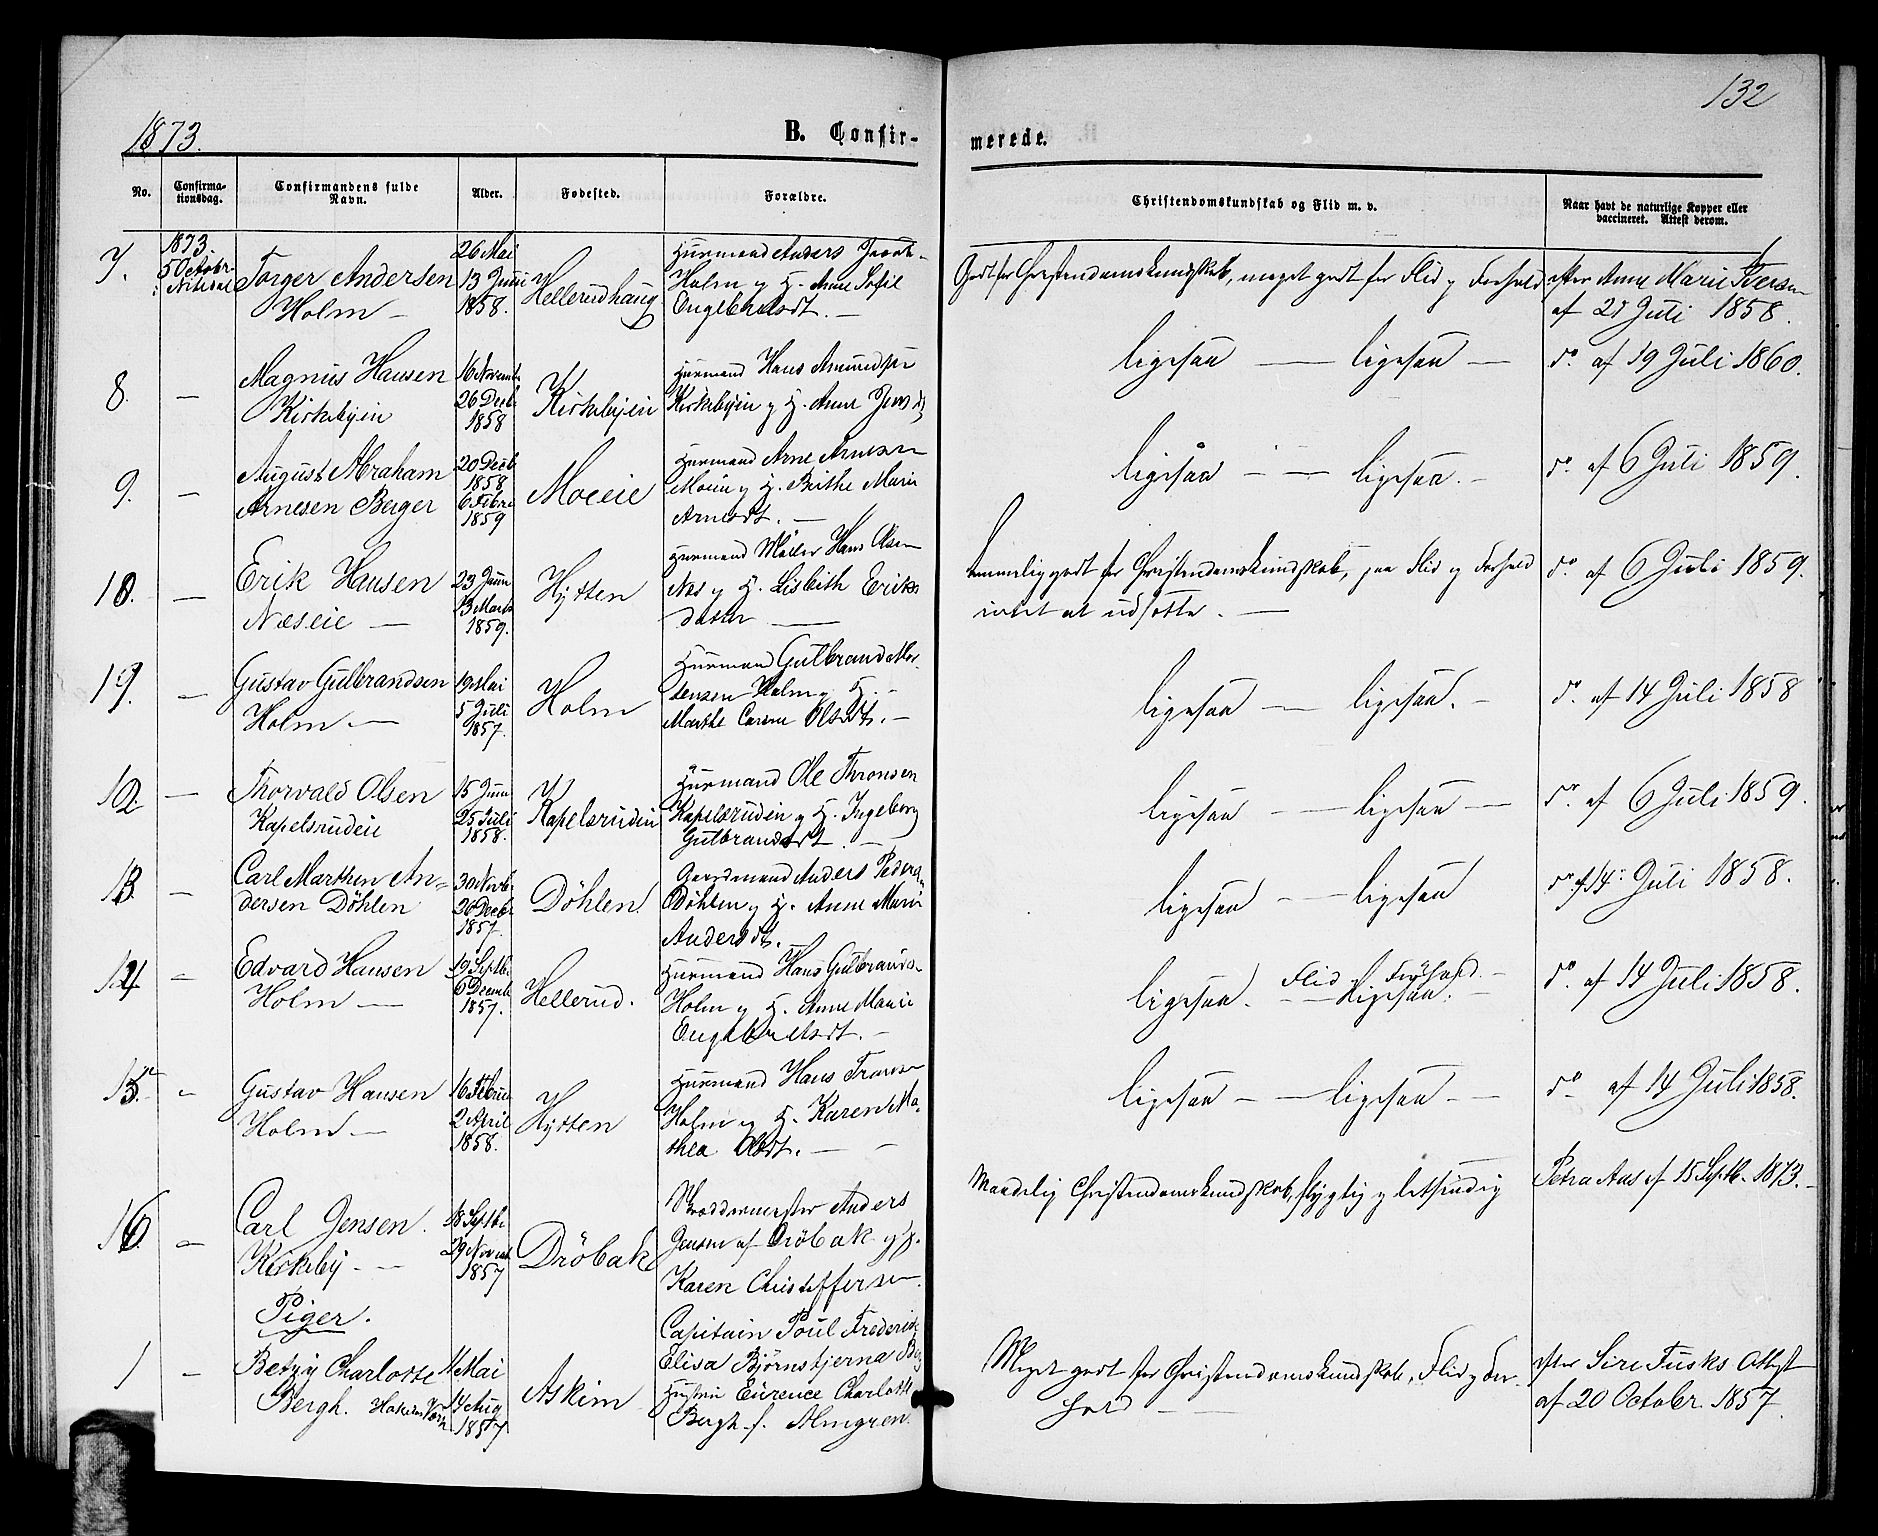 132
1873.
B. Confir-
merede.
No.
Confirma-
tionsdag.
Confirmandens fulde
Navn.
Alder.
Fødested.
Forældre.
Christendomskundskab og Flid m. v.
Naar havt de naturlige Kopper eller
vaccineret. Attest derom.
7.
1873.
5 Octobr.
Torger Andersen
Holm —
26 Mai
13 Juni
1858.
Hellerudhaug
Huusmand Anders
Holm og H. Anne Sofie
Engebretsdt. —
Godt for Christendomskundskab, meget godt for Flid og Forhold
efter Anne Marie Iversen
af 21 Juli 1858.
8. —
Magnus Hansen
Kirkebyeie
16 Novemb
26 Decb
1858
Kirkebyeie
Huusmand Hans Amundsen
Kirkebyeie og H. Anne
ligesaa — ligesaa —
do af 19 Juli 1860.
9. —
August Abraham
Arnesen Berger
20 Decb
1858
6 Febr
1859
Moeeie
Huusmand Arne Arnesen
Moeeie og H. Birthe Marie
Arnesdt. —
ligesaa — — ligesaa. —
do. af 6 Juli 1859.
10. —
Erik Hansen
Næseie —
23 Janu
13 Marts
1859.
Hytten
Huusmand Hans Olsen
Næs og H. Lisbeth Eriks
datter —
Temmelig godt for Christendomskundskab, paa Flid og Forhold
intet at udsætte. —
do. af 6 Juli 1859.
19. —
Gustav Gulbrandsen
Holm —
19 Mai
5 Juli
1857.
Holm
Huusmand Gulbrand Mor-
tensen Holm og H. -
Marthe Carine Olsdt. —
ligesaa — ligesaa. —
do. af 14 Juli 1858
12. —
Thorvald Olsen
Kapelsrudeie
15 Juni
25 Juli
1858.
Kapelsrudeie
Huusmand Ole Thronsen
Kapelsrudeie og H. Ingeborg
Gulbrandsdt. —
ligesaa — ligesaa —
do. af 6 Juli 1859.
13. —
Carl Marthin An=
dersen Döhlen
30 Novb
26 Decbr
1857.
Döhlen.
Gaardmand Anders Peders
Döhlen og H. Anne Marie
Andersdt.
ligesaa — — ligesaa
do af 14: Juli 1858.
14 —
Edvard Hansen
Holm —
19 Septb.
6 Decemb
1857.
Hellerud.
Huusmand Hans Gulbrands-
Holm og H. Anne Marie
Engebretsdt. —
ligesaa. Flid og Forhold. —
ligesaa.
do. af 14 Juli 1858.
15. —
Gustav Hansen
Holm —
16 Februar
2 April
1858.
Hytten
Huusmand Hans Tronsen
Holm og H. Karen Ma-
thea Olsdt. — —
ligesaa — — ligesaa — —
do af 14 Juli 1858.
16. —
Carl Jensen.
Kirkeby — —
18 Septbr
29 Novemb
1857
Dröbak
Skræddermester Anders
Jensen af Dröbak og H.
Karen Christoffersen.
Maadelig Christendomskundskab, flygtig og letsindig
Petra Aas af 15 Septb. 1873. —
Piger.
1 —
Betzy Charlotte
Bergh.
Mai
14 Aug
1857
Askim
Capitain Poul Frederik
Elisa Björnstjerna
Hustru Eurence Charlotte
Bergh f. Almgren.
Meget godt for Christendomskundskab, Flid og For-
hold —
efter Siri Fusks Attest
af 20 October 1857.